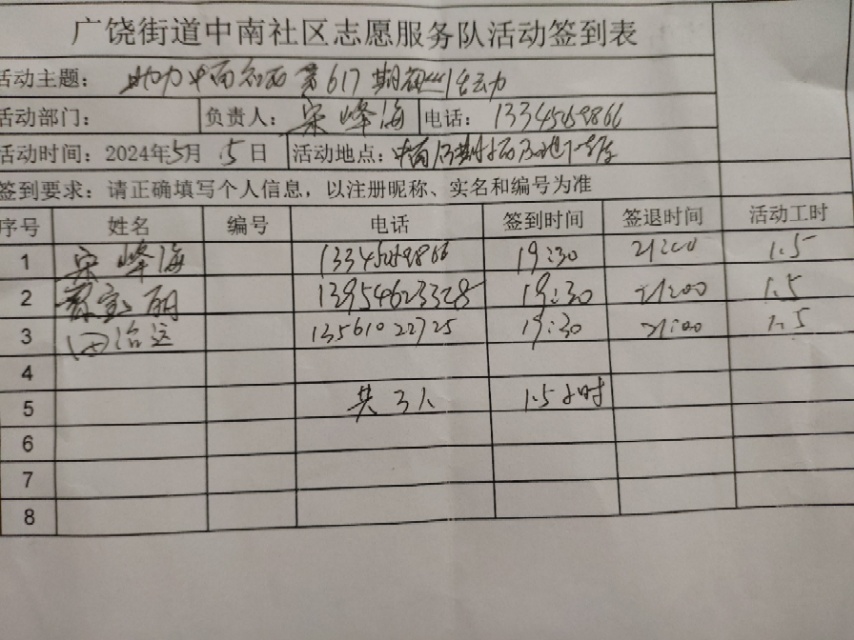 广饶街道中南社区志愿服务队活动签到表
活动主题: 助力中南社区第617期 活动
活动部门: 负责人: 宋峰海 电话: 13345069866
活动时间: 2024年5月15日 活动地点: 中南
签到要求: 请正确填写个人信息, 以注册昵称、实名和编号为准
序号 姓名 编号 电话 签到时间 签退时间 活动工时
1 宋峰海 13345069866 19:30 21:00 1.5
2 宝丽 13954623328 19:30 21:00 1.5
3 田治远 13561022725 19:30 21:00 1.5
4
5 共3人 1.5小时
6
7
8